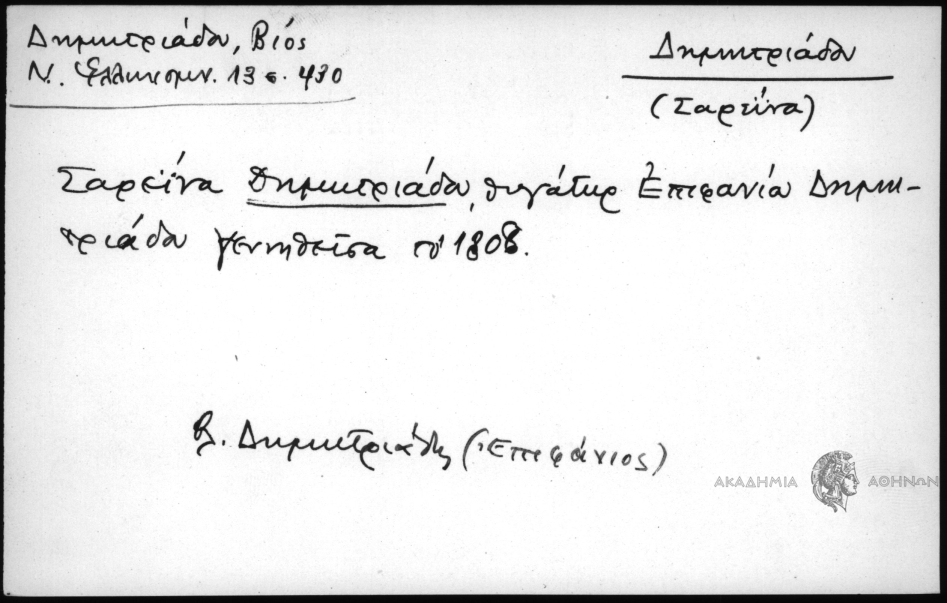 Δημητριάδου, Βίος
Ν. Ἑλληνομν. 13 σ. 430
Δημητριάδου
(Σαρείνα)
Σαρείνα Δημητριάδου, θυγάτηρ Ἐπιφανίου Δημη-
τριάδου γεννηθεῖσα τῷ 1808.
Β. Δημητριάδης (Ἐπιφάνιος)
ΑΚΑΔΗΜΙΑ ΑΘΗΝΩΝ